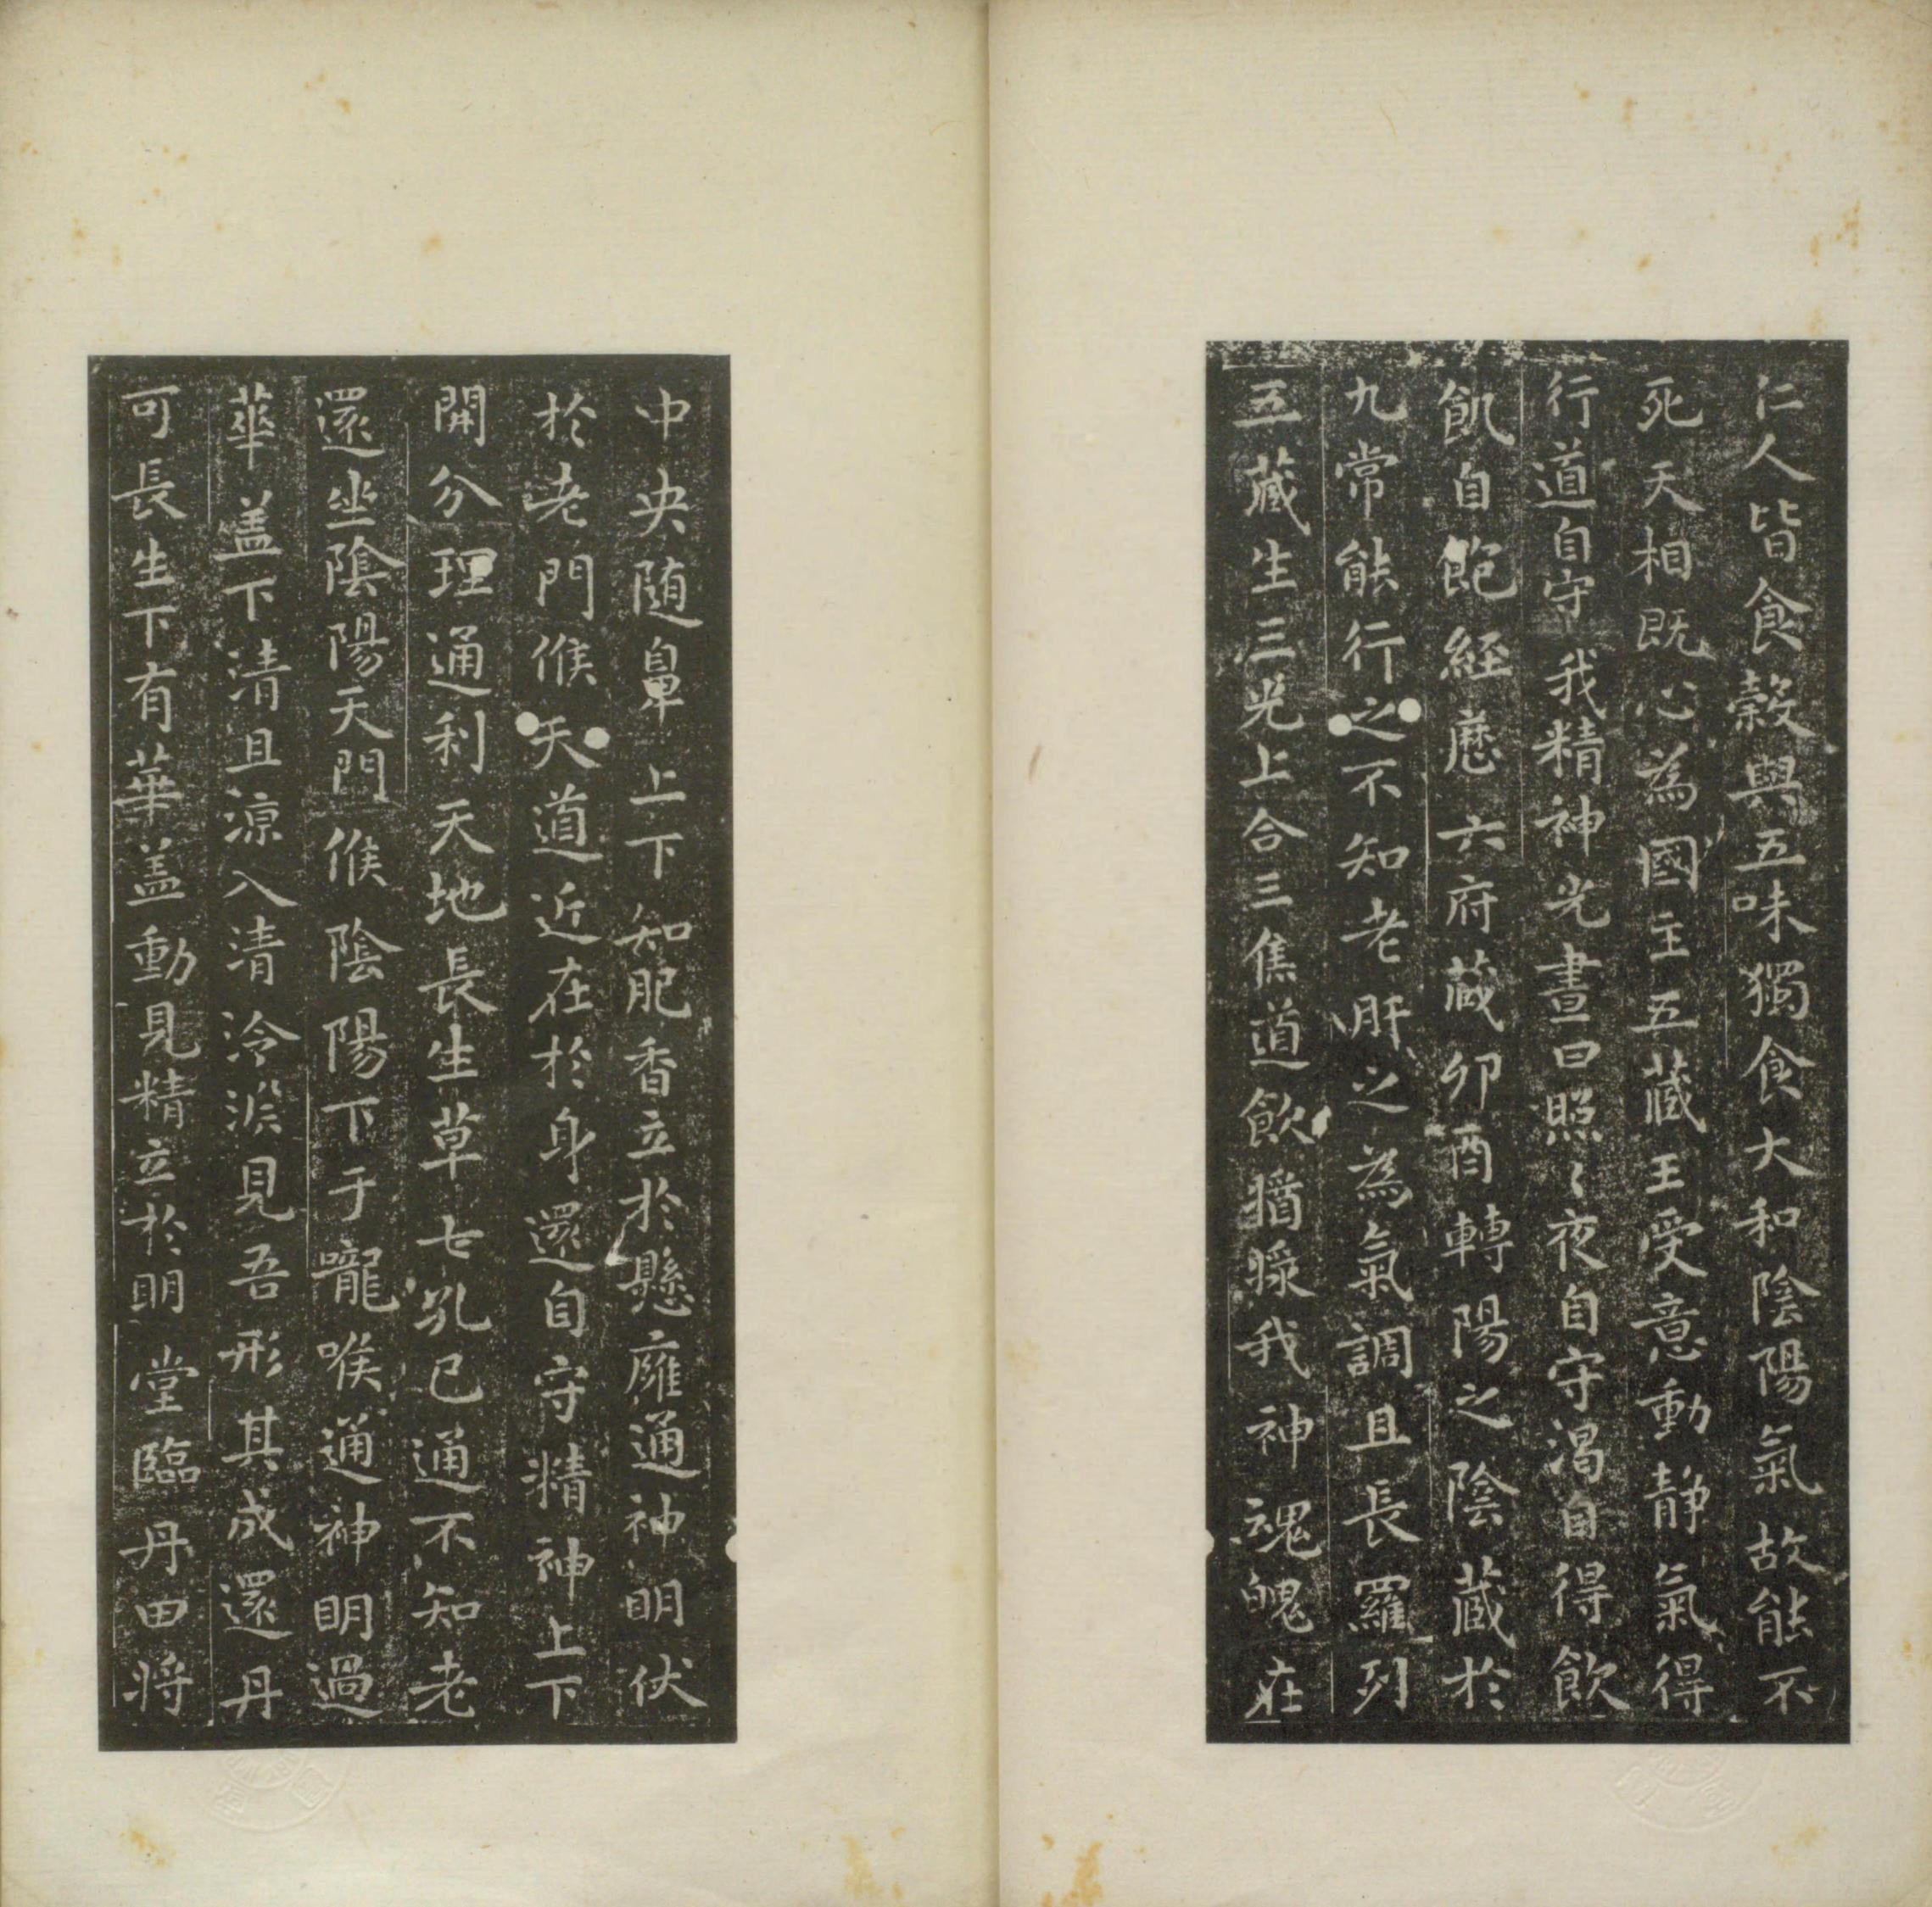 仁人皆食穀與五味獨食大和陰陽氣故能不
死天相既心為國主五藏王受意動静氣得
行道自守我精神光晝日照〻夜自守渇自得飲
飢自飽經歷六府藏卯酉轉陽之陰藏於
九常能行之不知老肝之為氣調且長羅列
五藏生三光上合三焦道飲我神魂魄在
中央随鼻上下知肥香立於懸廱通神明伏
於老門候天道近在於身還自守精神上下
開分理通利天地長生草七孔已通不知老
還坐陰陽天門候陰陽下于嚨喉通神明過
華盖下清且涼入清泠淵見吾形其成還丹
可長生下有華盖動見精立於明堂臨丹田将